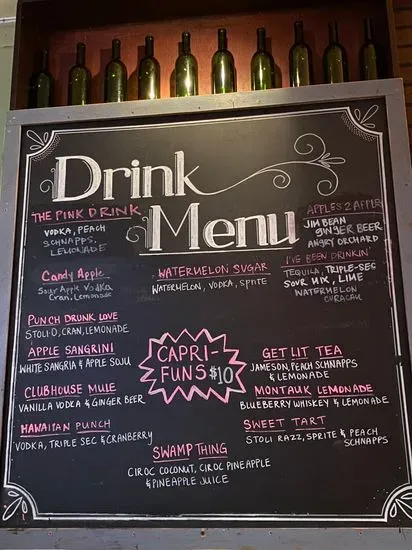 Drink
Menu
THE PINK DRINK
VODKA, PEACH
SCHNAPPS,
LEMONADE
APPLES 2 APPLES
JIM BEAN
GINGER BEER
ANGRY ORCHARD
Candy Apple
Sour Apple Vodka
Cran, Lemonade
WATERMELON SUGAR
WATERMELON, VODKA, SPRITE
I'VE BEEN DRINKIN'
TEQUILA, TRIPLE-SEC
SOUR MIX, LIME
WATERMELON
CURACAU
PUNCH DRUNK LOVE
STOLI-O, CRAN, LEMONADE
APPLE SANGRINI
WHITE SANGRIA & APPLE SOJU
CAPRI-
FUNS $10
GET LIT TEA
JAMESON, PEACH SCHNAPPS
& LEMONADE
CLUBHOUSE MULE
VANILLA VODKA & GINGER BEER
MONTAUK LEMONADE
BLUEBERRY WHISKEY & LEMONADE
HAWAIIAN PUNCH
VODKA, TRIPLE SEC & CRANBERRY
SWEET TART
STOLI RAZZ, SPRITE & PEACH
SCHNAPPS
SWAMP THING
CIROC COCONUT, CIROC PINEAPPLE
& PINEAPPLE JUICE